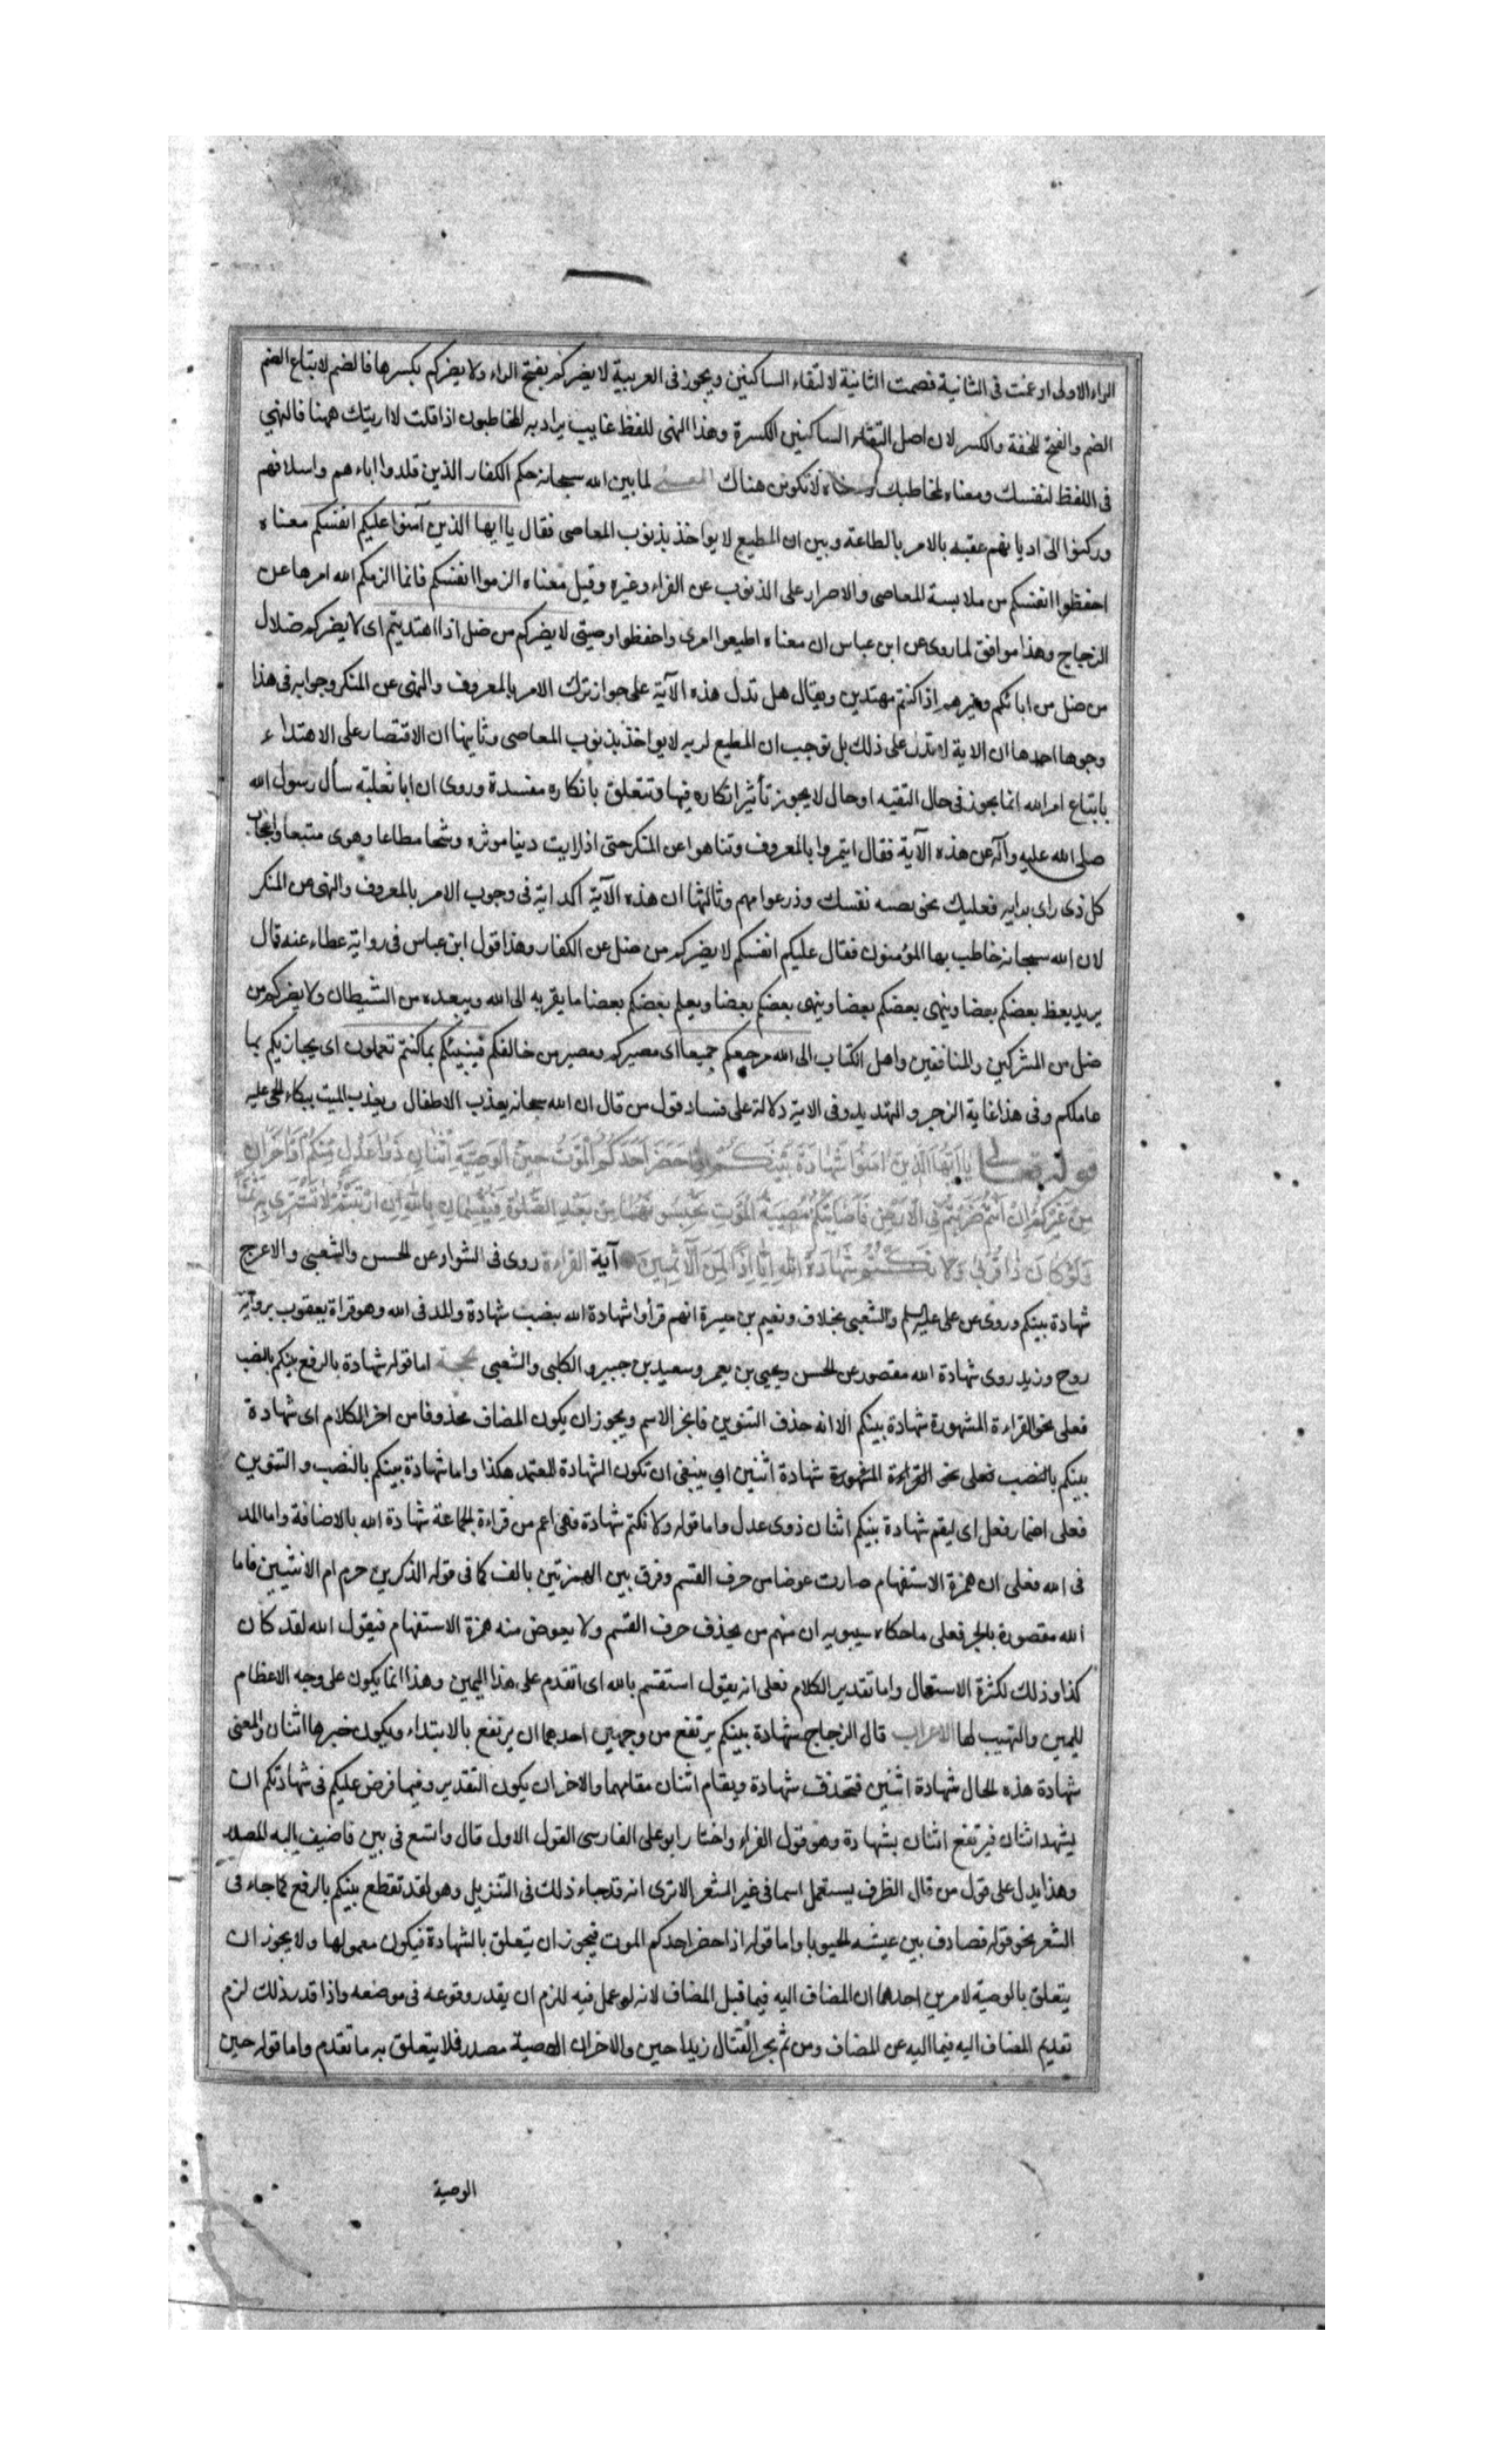 الراء الاولى ادغمت فى الثانية فضمت الثانية لالتقاء الساكنين ويجوز فى العربية لا يضركم بفتح الراء ولا يضركم بكسرها فالضم لاتباع الضم
الضم والفتح للخفة والكسر لان اصل التقاء الساكنين الكسرة وهذا النهى للفظ غايب يراد به المخاطبون اذا قلت لا اريتك ههنا فالنهي
فى اللفظ لنفسك ومعناه لمخاطبك لا تكونن هناك المعنى لما بين الله سبحانه حكم الكفار الذين قلدوا اباءهم واسلافهم
وركنوا الى اديانهم عقبه بالامر بالطاعة وبين ان المطيع لا يواخذ بذنوب المعاصى فقال يا ايها الذين آمنوا عليكم انفسكم معناه
احفظوا انفسكم من ملابسة المعاصى والاصرار على الذنوب عن الفراء وغيره وقيل معناه الزموا انفسكم فانما الزمكم الله امرها عن
الزجاج وهذا موافق لما روى عن ابن عباس ان معناه اطيعوا امرى واحفظوا وصيتى لا يضركم من ضل اذا اهتديتم اى لا يضركم ضلال
من ضل من ابائكم وغيرهم اذا كنتم مهتدين ويقال هل تدل هذه الآية على جواز ترك الامر بالمعروف والنهى عن المنكر وجوابه فى هذا
وجوها احدها ان الاية لا تدل على ذلك بل توجب ان المطيع لربه لا يواخذ بذنوب المعاصى وثانيها ان الاقتصار على الاهتداء
باتباع امر الله انما يجوز فى حال التقيه او حال لا يجوز تأثير انكاره فيها وتتعلق بانكاره مفسدة وروى ان ابا ثعلبة سأل رسول الله
صلى الله عليه وآله عن هذه الآية فقال ايتمروا بالمعروف وتناهوا عن المنكر حتى اذا رايت دنيا موثره وشحا مطاعا وهوى متبعا واعجاب
كل ذى راى برايه فعليك بخويصه نفسك وذر عوامهم وثالثها ان هذه الآية اكد اية فى وجوب الامر بالمعروف والنهى عن المنكر
لان الله سبحانه خاطب بها المؤمنون فقال عليكم انفسكم لا يضركم من ضل عن الكفار وهذا قول ابن عباس فى رواية عطاء عنه قال
يريد يعظ بعضكم بعضا وينهى بعضكم بعضا وينهى بعضكم بعضا ويعلم بعضكم بعضا ما يقربه الى الله ويبعده من الشيطان ولا يضركم من
ضل من المشركين والمنافقين واهل الكتاب الى الله مرجعكم جميعا اى مصيركم ومصير من خالفكم فينبئكم بما كنتم تعملون اى يجازيكم بما
عاملكم وفى هذا غاية الزجر والتهديد وفى الاية دلالة على فساد قول من قال ان الله سبحانه يعذب الاطفال ويعذب الميت ببكاء الحى عليه
قوله تعالى يا ايها الذين امنوا شهادة بينكم اذا حضر احدكم الموت حين الوصية اثنان ذوا عدل منكم او اخران
من غيركم ان انتم ضربتم فى الارض فاصابتكم مصيبة الموت تحبسونهما من بعد الصلوة فيقسمان بالله ان ارتبتم لا نشترى به ثمنا
ولو كان ذا قربى ولا نكتم شهادة الله انا اذا لمن الآثمين آية القراءة روى فى الشواذ عن الحسن والشعبى والاعرج
شهادة بينكم وروى عن على عليه السلم والشعبى بخلاف ونعيم بن ميسرة انهم قرأوا شهادة الله بنصب شهادة والمد فى الله وهو قراة يعقوب برواية
روح وزيد روى شهادة الله مقصور عن الحسن ويحيى بن يعمر وسعيد بن جبير والكلبى والشعبى الحجة اما قوله شهادة بالرفع بينكم بالنصب
فعلى نحو القراءة المشهورة شهادة بينكم الا انه حذف التنوين فانجز الاسم ويجوز ان يكون المضاف محذوفا من اخر الكلام اى شهادة
بينكم بالنصب فعلى نحو القراءة المشهورة شهادة اثنين اى ينبغى ان تكون الشهادة المعتمد هكذا واما شهادة بينكم بالنصب والتنوين
فعلى اضمار فعل اى ليقم شهادة بينكم اثنان ذوى عدل واما قوله ولا نكتم شهادة فهى اعم من قراءة الجماعة شهادة الله بالاضافة واما المد
فى الله فعلى ان همزة الاستفهام صارت عوضا من حرف القسم وفرق بين الهمزتين بالف كما فى قوله الذكرين حرم ام الانثيين فاما
الله مقصورة بالجر فعلى ما حكاه سيبويه ان منهم من يحذف حرف القسم ولا يعوض منه همزة الاستفهام فيقول الله لقد كان
كذا وذلك لكثرة الاستعمال واما تقدير الكلام فعلى انه يقول استقسم بالله اى اتقدم على هذا اليمين وهذا انما يكون على وجه الاعظام
لليمين والتهيب لها الاعراب قال الزجاج شهادة بينكم يرتفع من وجهين احدهما ان يرتفع بالابتداء ويكون خبرها اثنان والمعنى
شهادة هذه الحال شهادة اثنين فتحذف شهادة ويقام اثنان مقامهما والاخر ان يكون التقدير وفيما فرض عليكم فى شهادتكم ان
يشهد اثنان فيرتفع اثنان بشهادة وهو قول الفراء واختار ابو على الفارسى القول الاول قال واتسع فى بين فاضيف اليه المصدر
وهذا يدل على قول من قال الظرف يستعمل اسما فى غير الشعر الا ترى انه قد جاء ذلك فى التنزيل وهو لقد تقطع بينكم بالرفع كما جاء فى
الشعر نحو قوله فصادف بين عينيه الحبوبا واما قوله اذا حضر احدكم الموت فيجوز ان يتعلق بالشهادة فيكون معمولها ولا يجوز ان
يتعلق بالوصية لامرين احدهما ان المضاف اليه فيما قبل المضاف لانه لو عمل فيه للزم ان يقدر وقوعه فى موضعه واذا قدر ذلك لزم
تقديم المضاف اليه فيما اليه عن المضاف ومن ثم يجز القتال زيدا حين والاخر ان الوصية مصدر فلا يتعلق به ما تقدم واما قوله حين
الوصية